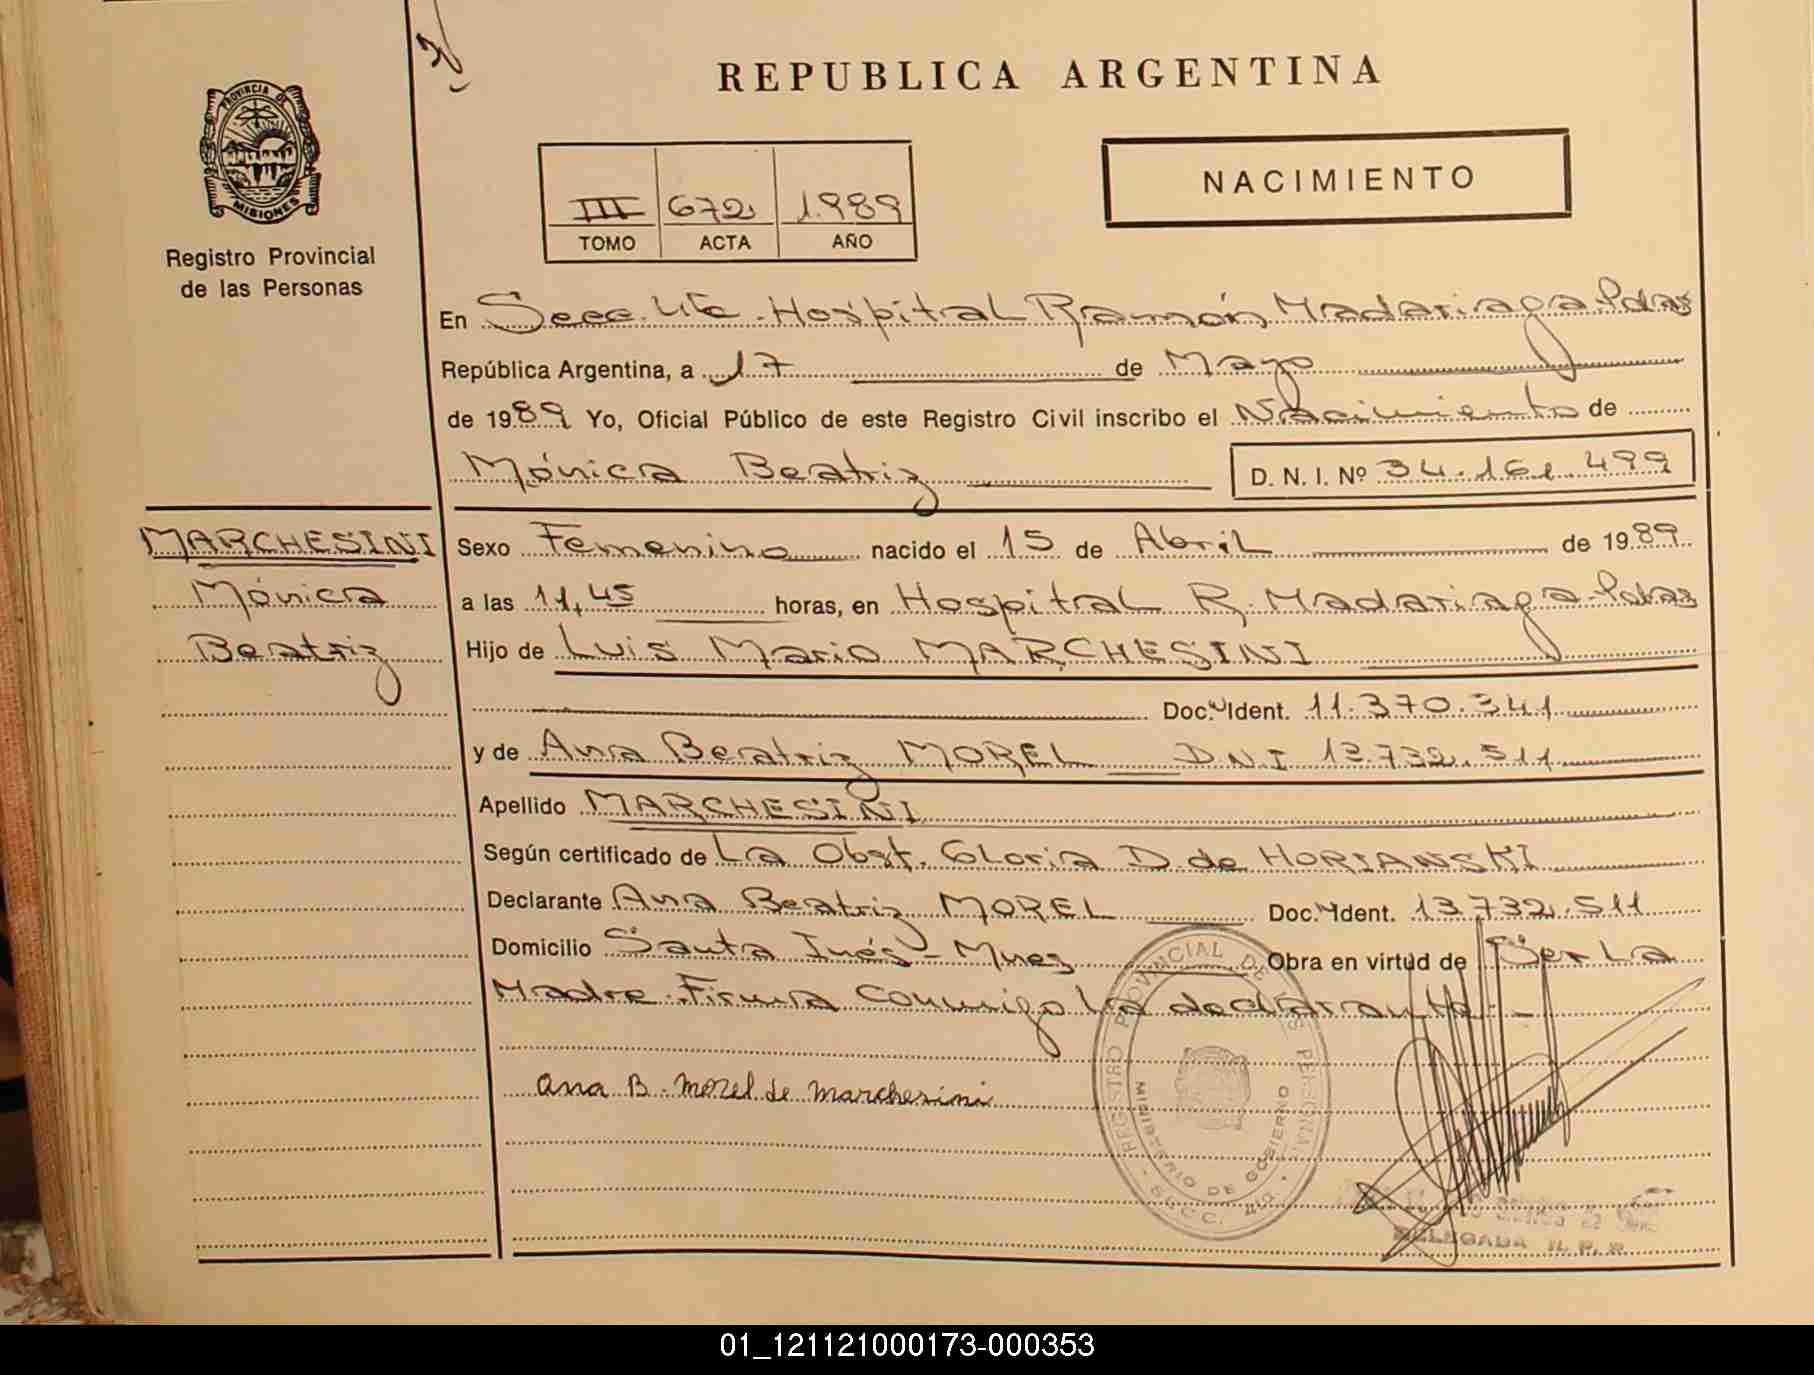 REPUBLICA ARGENTINA
PROVINCIA DE
MISIONES
Registro Provincial
de las Personas
III 672 1989
TOMO ACTA AÑO
NACIMIENTO
En Secc. 4ta. Hospital Ramón Madariaga-Pdas
República Argentina, a 17 de Mayo
de 1989 Yo, Oficial Público de este Registro Civil inscribo el Nacimiento de
Mónica Beatriz D. N. I. Nº 34.161.499
MARCHESINI
Mónica
Beatriz
Sexo Femenino nacido el 15 de Abril de 1989
a las 11,45 horas, en Hospital R. Madariaga-Pdas
Hijo de Luis Mario MARCHESINI
Doc. Ident. 11.370.341
y de Ana Beatriz MOREL DNI 13.732.511
Apellido MARCHESINI
Según certificado de La Obst. Gloria D. de HORIANSKI
Declarante Ana Beatriz MOREL Doc. Ident. 13.732.511
Domicilio Santa Inés - Mnes Obra en virtud de Ser La
Madre. Firma conmigo la declarante.-
Ana B. Morel de Marchesini
REGISTRO PROVINCIAL DE LAS PERSONAS
MINISTERIO DE GOBIERNO
SECC. 4ta.
DELEGADA R. P. P.
01_121121000173-000353